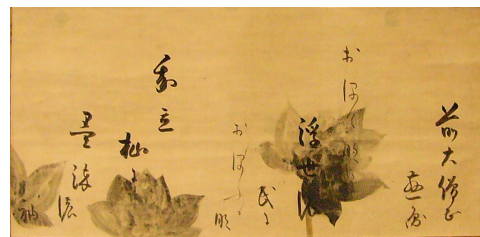 前大僧正
慈圓
おほけなく
浮世濃
民に
おほふ哉
我立
杣に
墨染
濃
袖